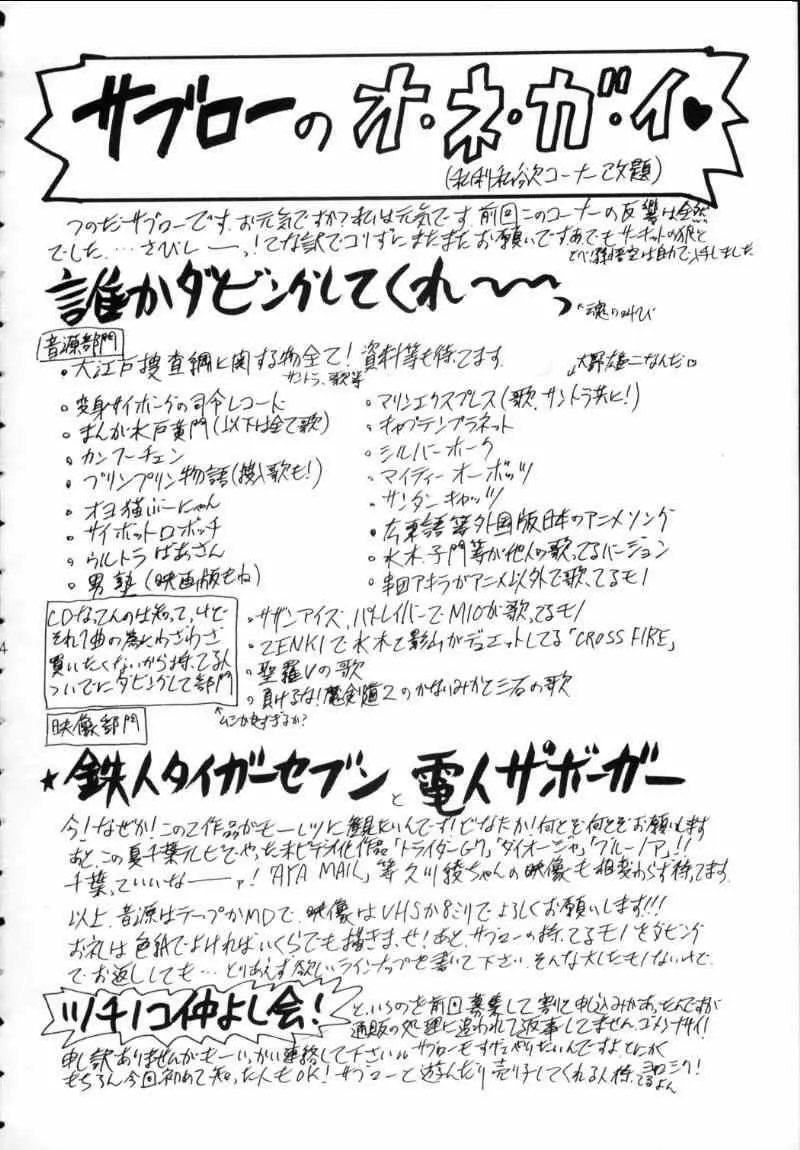 サブローのオ・ネ・ガ・イ♥
(私利私欲コーナー改題)
つのだサブローです。お元気ですか?私は元気です。前回このコーナーの反響は全然
でした…さびしーーっ!てな訳でコリずにまたまたお願いです。あ、でもサーキットの狼と
とべ!孫悟空は自力で入手しました
誰かダビングしてくれ〜〜っ
↖魂の叫び
音源部門
・大江戸捜査網に関する物全て!資料等も待ってます。
サントラ、歌等
大野雄二なんだ♡
・変身サイボーグの司令レコード
・まんが水戸黄門(以下は全て歌)
・カンフーチェン
・プリンプリン物語(挿入歌も!)
・オヨ猫ぶーにゃん
・サイボットロボッチ
・ウルトラばあさん
・男塾(映画版もね)
・マリンエクスプレス(歌、サントラ共に!)
・キャプテンプラネット
・シルバーホーク
・マイティーオーボッツ
・サンダーキャッツ
・広東語等外国版日本のアニメソング
・水木、子門等が他人の歌ってるバージョン
・串田アキラがアニメ以外で歌ってるモノ
CDなってんのは知ってっけど
それ1曲の為にわざわざ
買いたくないから持ってる人
ついでにダビングして部門
↖ムシが良すぎるか?
・サザンアイズ、パトレイバーでMIOが歌ってるモノ
・ZENKIで水木と影山がデュエットしてる「CROSS FIRE」
・聖羅Vの歌
・負けるな!魔剣道2のかないみかと三石の歌
映像部門
★鉄人タイガーセブンと電人ザボーガー
今!なぜか!この2作品がモーレツに観たいんです!どなたか!何とぞ何とぞお願いします
あと、この夏千葉テレビでやった未ビデオ化作品「トライダーG7」「ダイオージャ」「クルーノア」!!
千葉っていいなーーァ!「AYA MAIL」等久川綾ちゃんの映像も相変わらず待ってます。
以上、音源はテープかMDで、映像はVHSか8ミリでよろしくお願いします!!!
お礼は色紙でよければいくらでも描きまっせ!あと、サブローの持ってるモノをダビング
でお返ししても…とりあえず欲しいラインナップを書いて下さい。そんな大したモノないけど
ツチノコ仲よし会!
というのを前回募集して割と申込みがあったんですが
通販の処理に追われて返事してません。ゴメンナサイ!
申し訳ありませんがもーいっかい連絡して下さい。サブローもすげェやりたいんですよとにかく
もちろん今回初めて知った人もOK!サブローと遊んだり売り子してくれる人待ってるよん
ヨロシク!